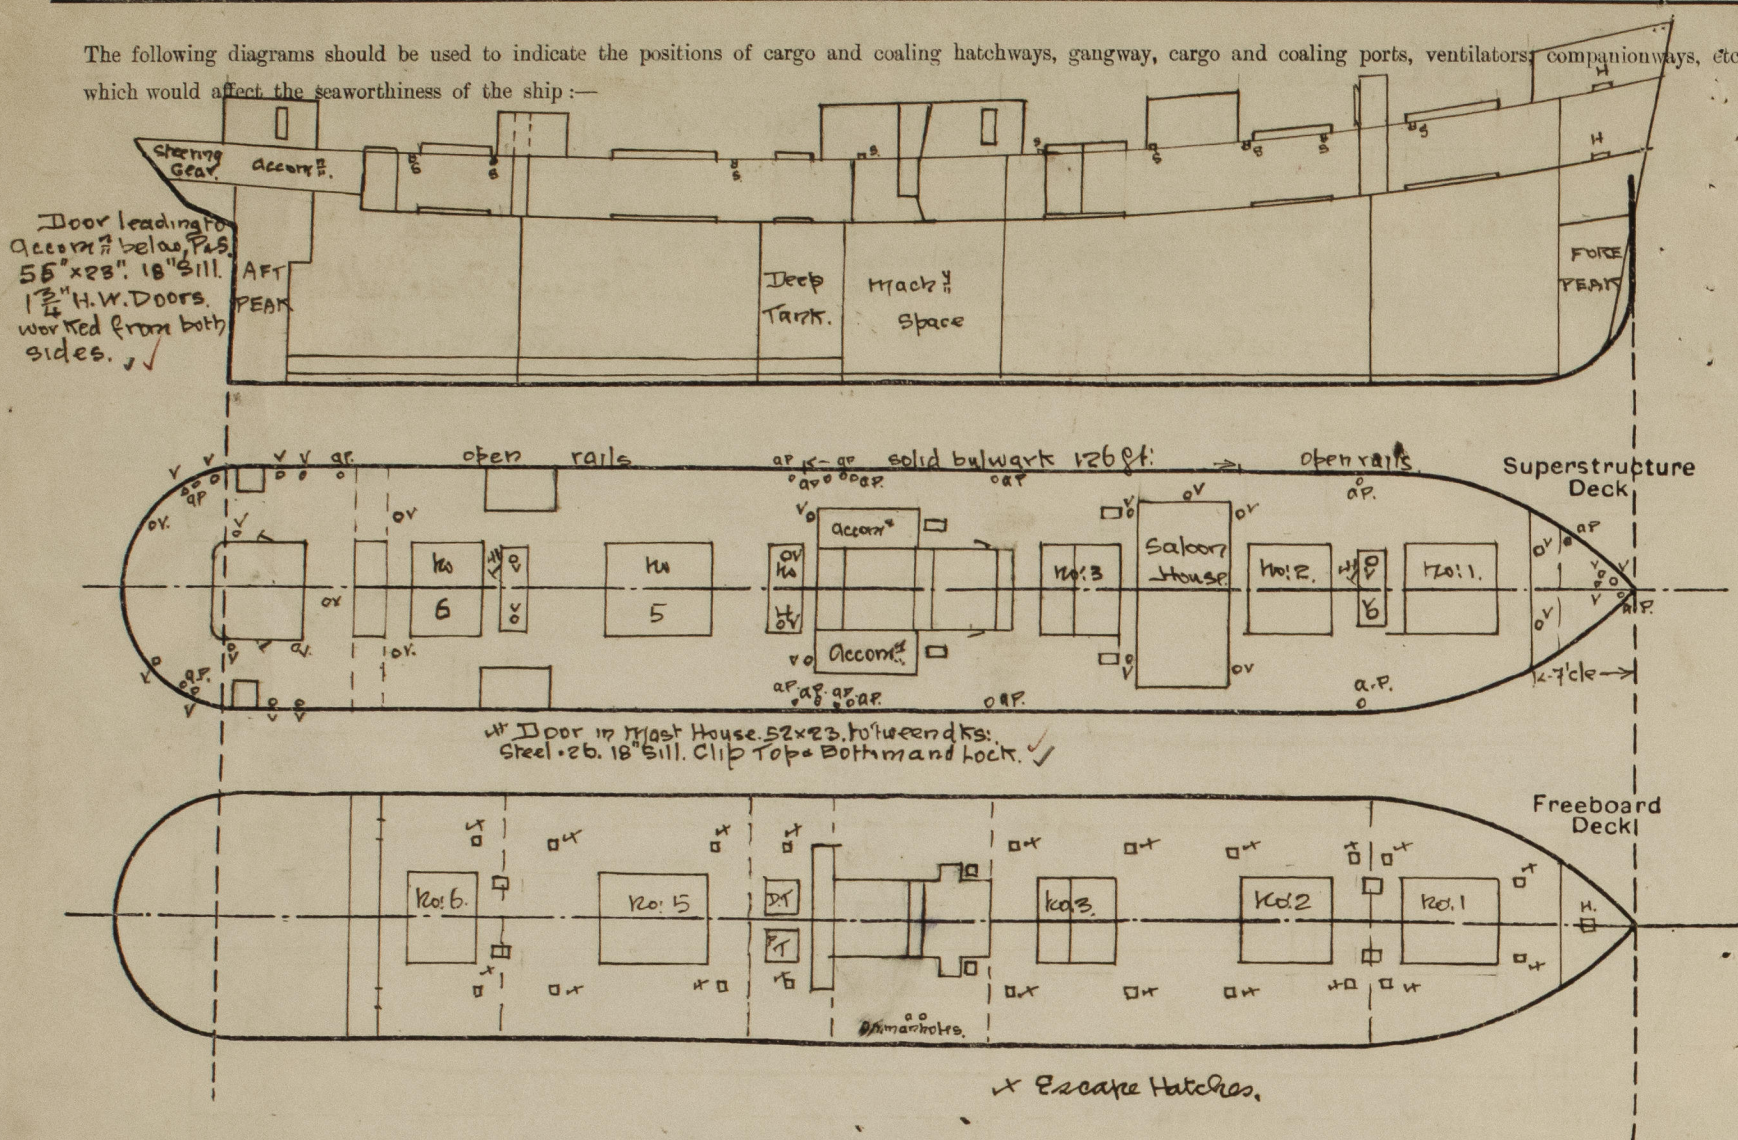 The following diagrams should be used to indicate the positions of cargo and coaling hatchways, gangway, cargo and coaling ports, ventilators, companionways, etc
which would affect the seaworthiness of the ship :—
H
Steering
Gear.
accomn.
H
Door leading to
accomn below, P&S.
55"x23". 18" Sill.
1¾" H.W. Doors.
worked from both
sides.
AFT
PEAK
Deep
Tank.
Machy
Space
FORE
PEAK
open rails
solid bulwark 126 ft:
open rails
Superstructure
Deck
accomn
Saloon
House
No
6
No
5
No
No:3
No:2.
No:1.
accomn
F'cle
Door in Mast House. 52x23. to 'tween dks:
Steel .26. 18" Sill. Clip Top & Bottm and Lock.
Freeboard
Deck
No:6.
No: 5
DT
No.3.
No:2
No.1
H.
manholes.
x Escape Hatches.